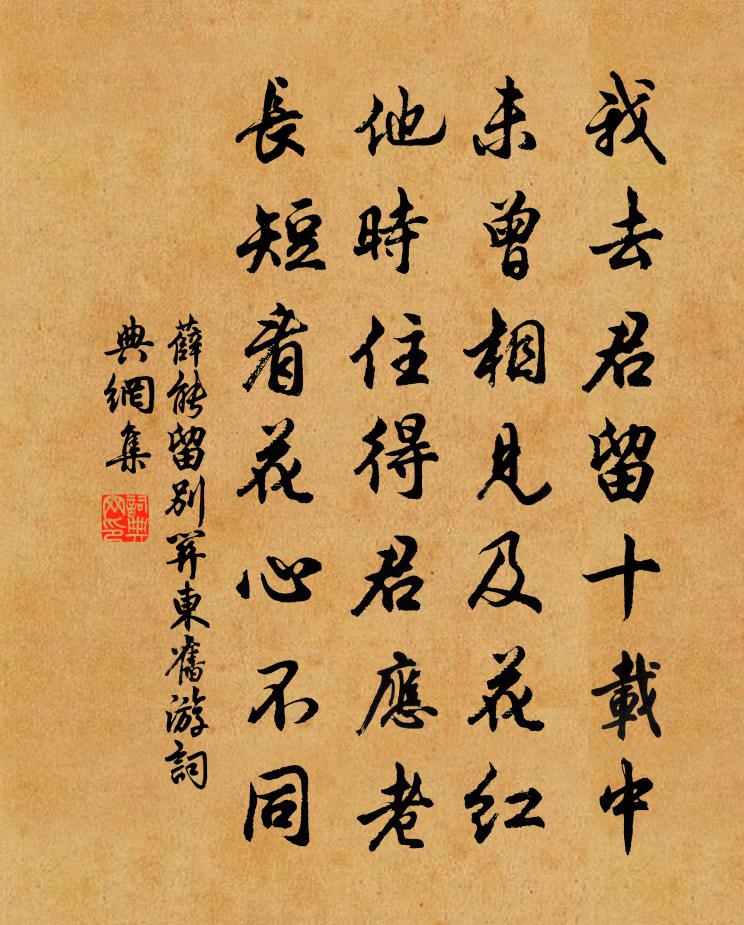 我去君留十載中
未曾相見及花紅
他時住得君應老
長短看花心不同
薛能留別關東舊游詞
典網集
詞典
网印